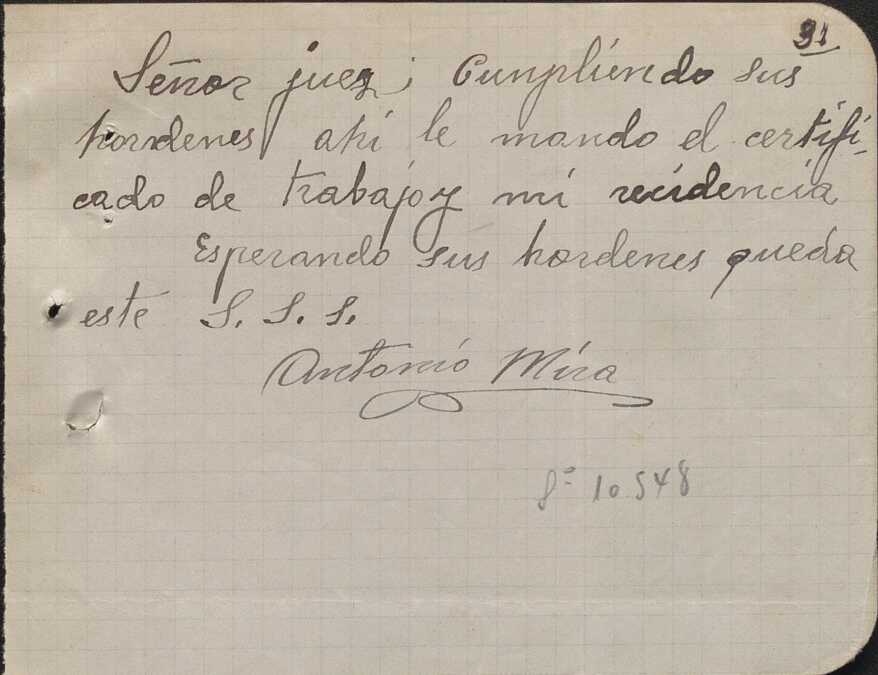 31
Señor juez; Cunpliendo sus
hordenes ahi le mando el certifi-
cado de trabajo y mi recidencia
Esperando sus hordenes queda
este S. S. S.
Antonio Mira
10548